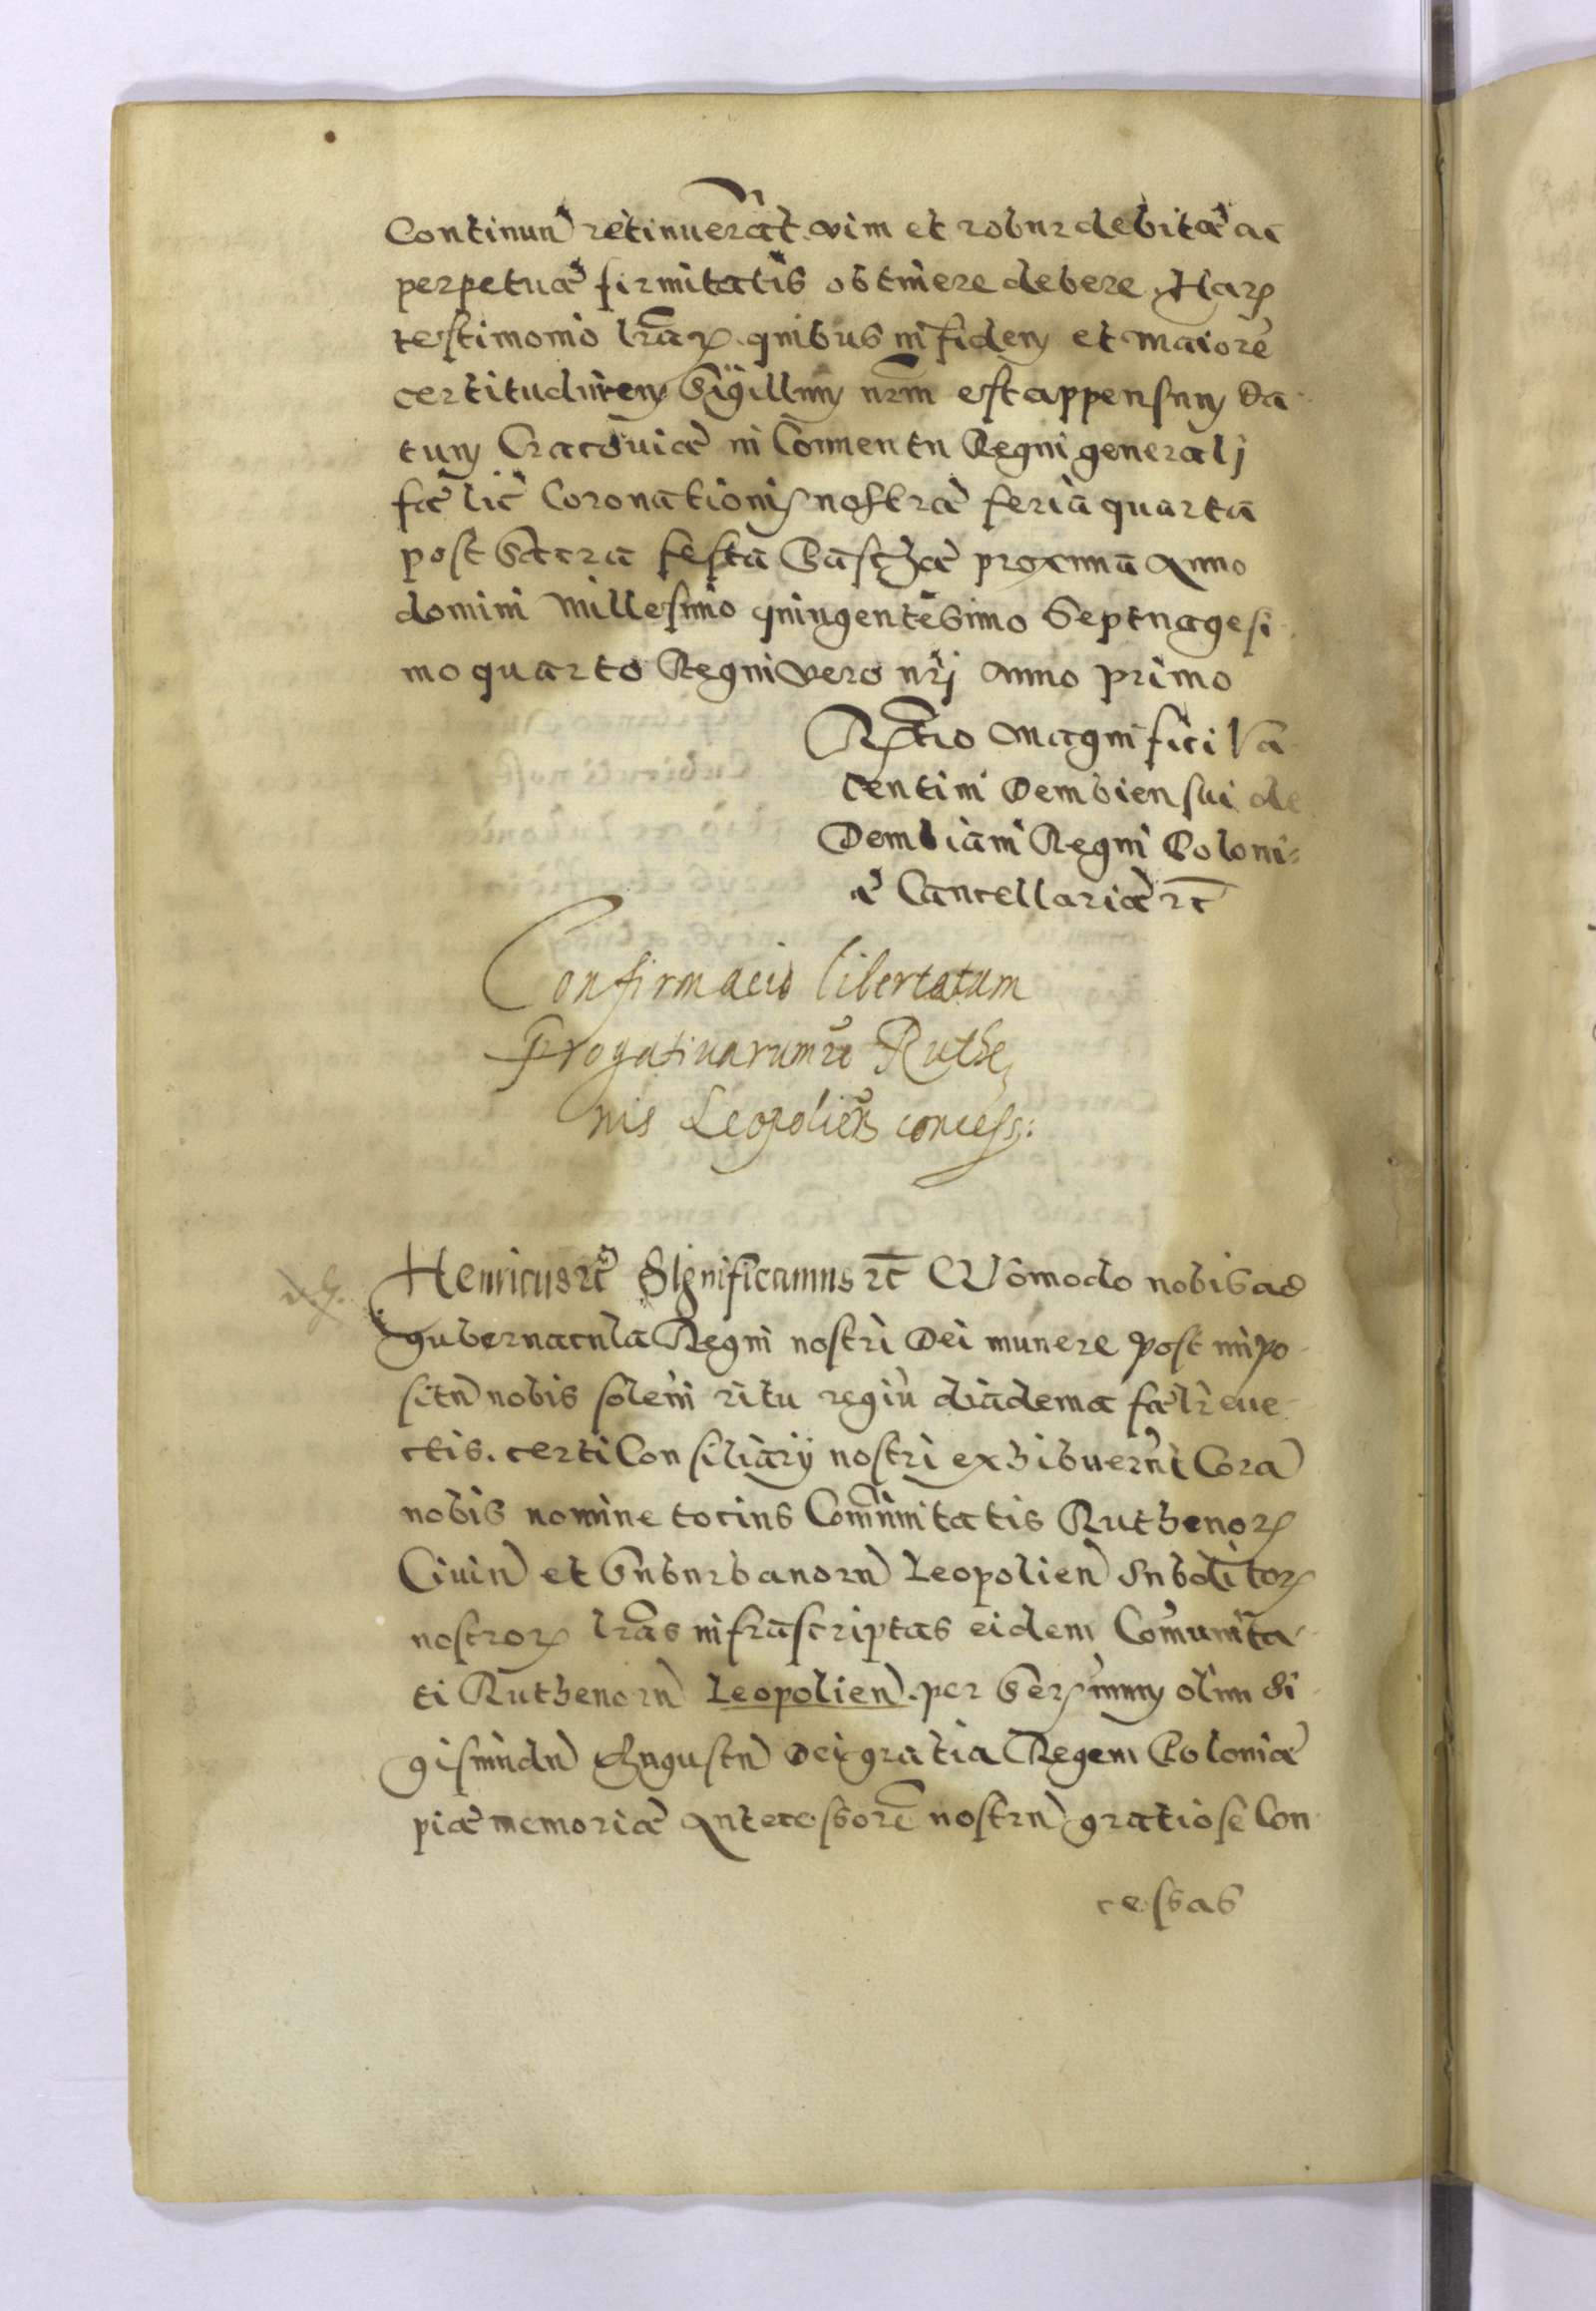 Continuũ retinuerãt. vim et robur debitæ ac
perpetuæ firmitatis obtinere debere. Harꝝ
testimonio lrãꝝ. quibus in fidem et maiorẽ
certitudinem Sigillum nrm̃ est appensum Da-
tum Cracoviæ in Conventu Regni generalj
fælic̃ Coronationis nostræ feria quarta
post Sacra festa Paschæ proxima Anno
domini Millesimo quingentesimo Septuagesi-
mo quarto Regni vero nrj̃ Anno primo
Rel̃atio Magnifici Va-
lentini Dembiensui de
Dembiani Regni Poloni=
æ Cancellariæ rc̃
Confirmacio libertatum
Progativarumq̃ Ruthe
nis Leopolieñ concess:
Henricus rc̃ Significamus rc̃ Quõmodo nobis ad
gubernacula Regni nostri Dei munere post impo-
sitũ nobis solem̃ ritu regiũ diadema fæl̃r eue-
ctis. certi Consiliarij nostri exhibuerũt Corã
nobis nomine tocius Com̃unitatis Ruthenorꝝ
Ciuiũ et Suburbanorũ Leopolieñ Subditorꝝ
nostrorꝝ lrãs infrascriptas eidem Com̃unita-
ti Ruthenorũ Leopolieñ. per Serꝫimum olim Si-
gismũdũ Augustũ Dei gratia Regem Poloniæ
piæ memoriæ Antecessorẽ nostrũ gratiose Con-
cessas